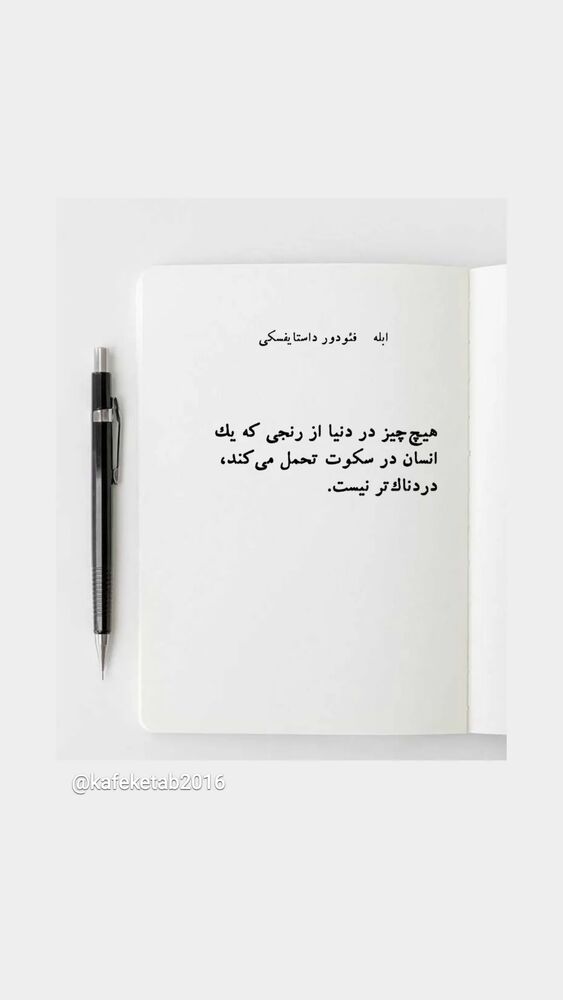 ابله فئودور داستایفسکی
هیچ‌چیز در دنیا از رنجی که یك
انسان در سکوت تحمل می‌کند،
دردناك‌تر نیست.
@kafeketab2016